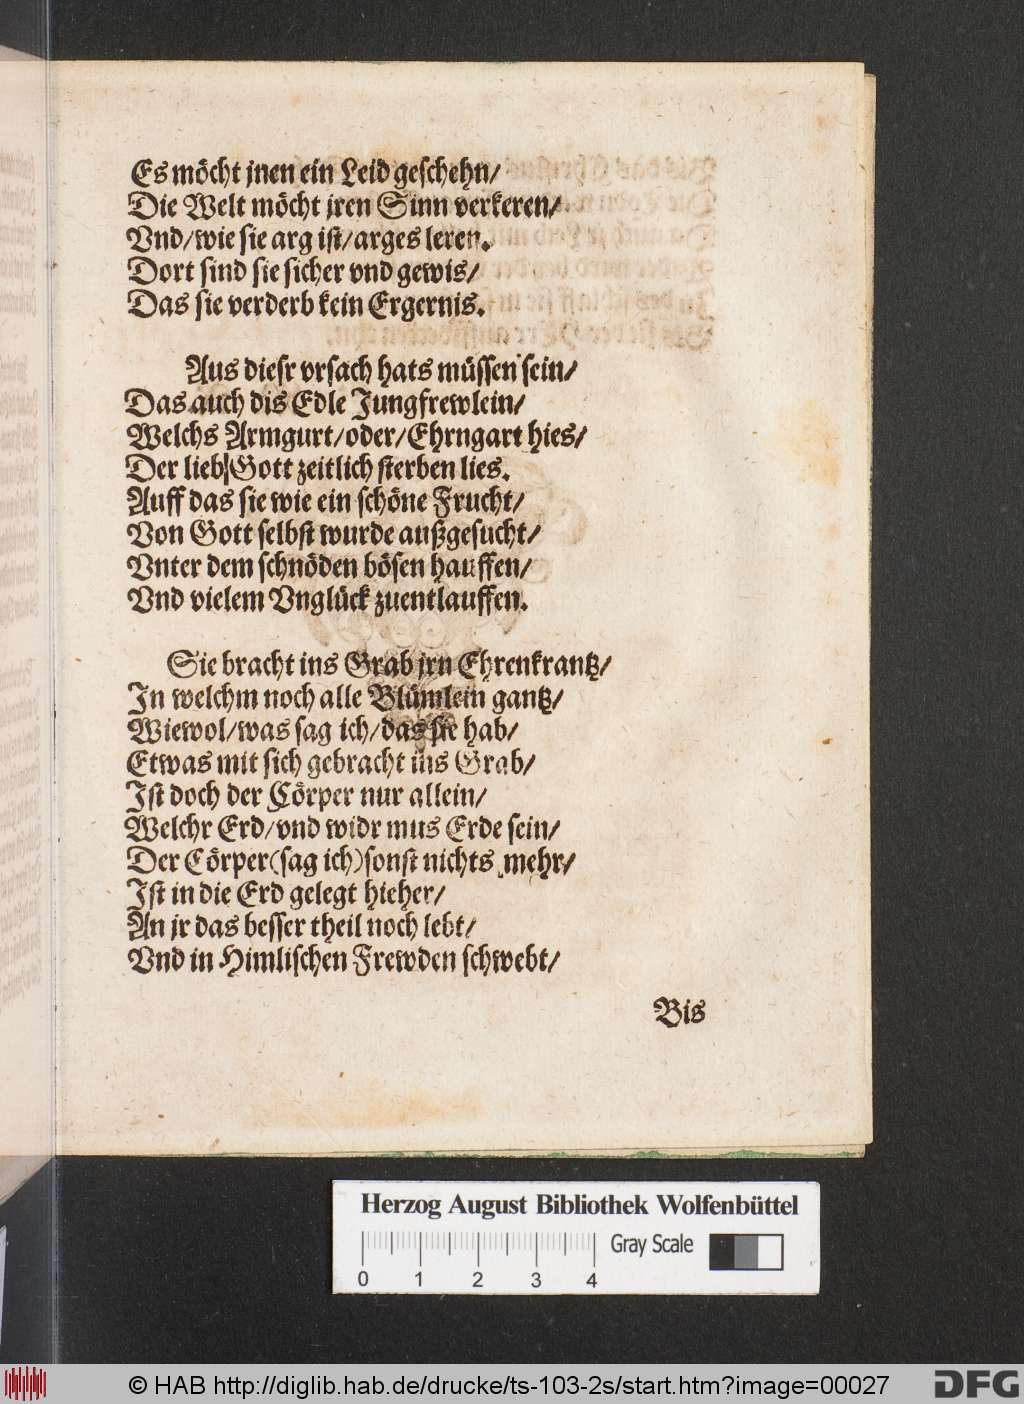 Es möcht jnen ein Leid geschehn/
Die Welt möcht jren Sinn verkeren/
Vnd/wie sie arg ist/arges leren.
Dort sind sie sicher vnd gewis/
Das sie verderb kein Ergernis.
Aus diesr vrsach hats müssen sein/
Das auch dis Edle Jungfrewlein/
Welchs Armgurt/oder/Ehrngart hies/
Der lieb Gott zeitlich sterben lies.
Auff das sie wie ein schöne Frucht/
Von Gott selbst wurde außgesucht/
Vnter dem schnöden bösen hauffen/
Vnd vielem Vnglück zuentlauffen.
Sie bracht ins Grab jrn Ehrenkrantz/
In welchm noch alle Blümlein gantz/
Wiewol/was sag ich/das sie hab/
Etwas mit sich gebracht ins Grab/
Ist doch der Cörper nur allein/
Welchr Erd/vnd widr mus Erde sein/
Der Cörper(sag ich)sonst nichts mehr/
Ist in die Erd gelegt hieher/
An jr das besser theil noch lebt/
Vnd in Himlischen Frewden schwebt/
Bis
Herzog August Bibliothek Wolfenbüttel
Gray Scale
0 1 2 3 4
© HAB http://diglib.hab.de/drucke/ts-103-2s/start.htm?image=00027
DFG